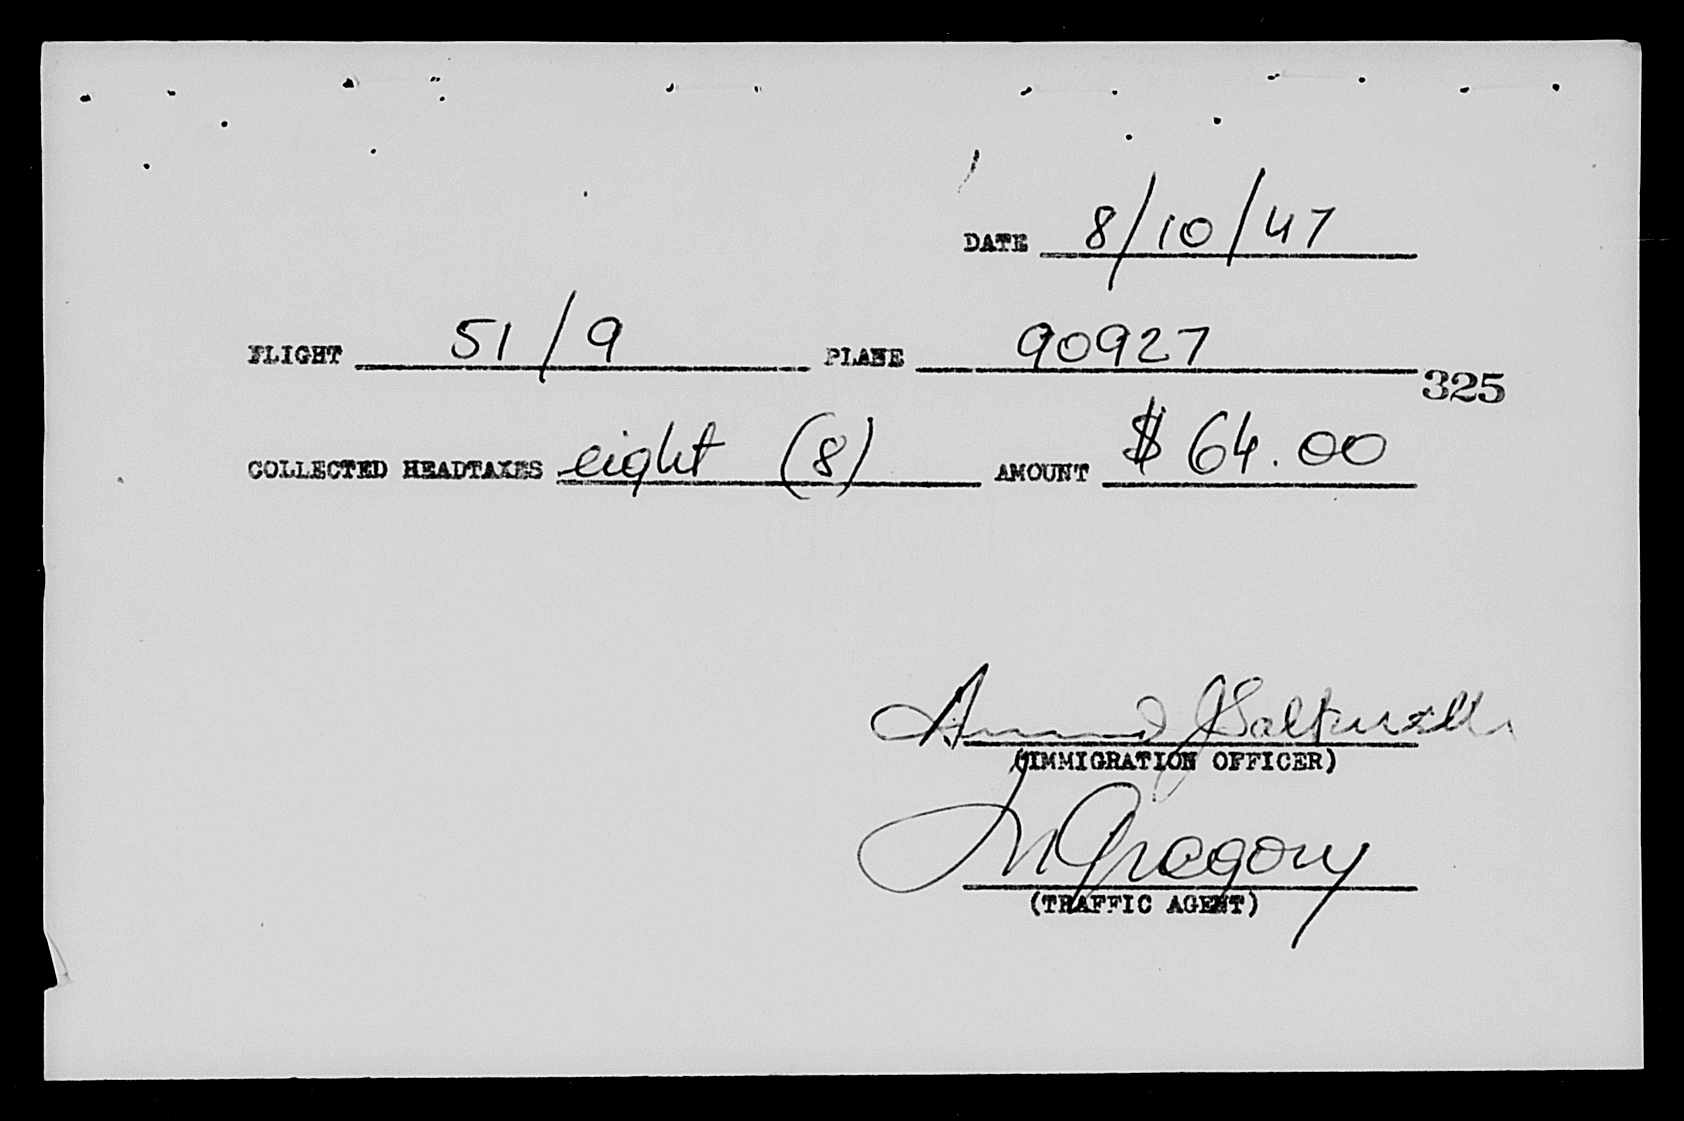 DATE 8/10/47
FLIGHT 51/9 PLANE 90927
325
COLLECTED HEADTAXES eight (8) AMOUNT $ 64.00
(IMMIGRATION OFFICER)
Gregory
(TRAFFIC AGENT)